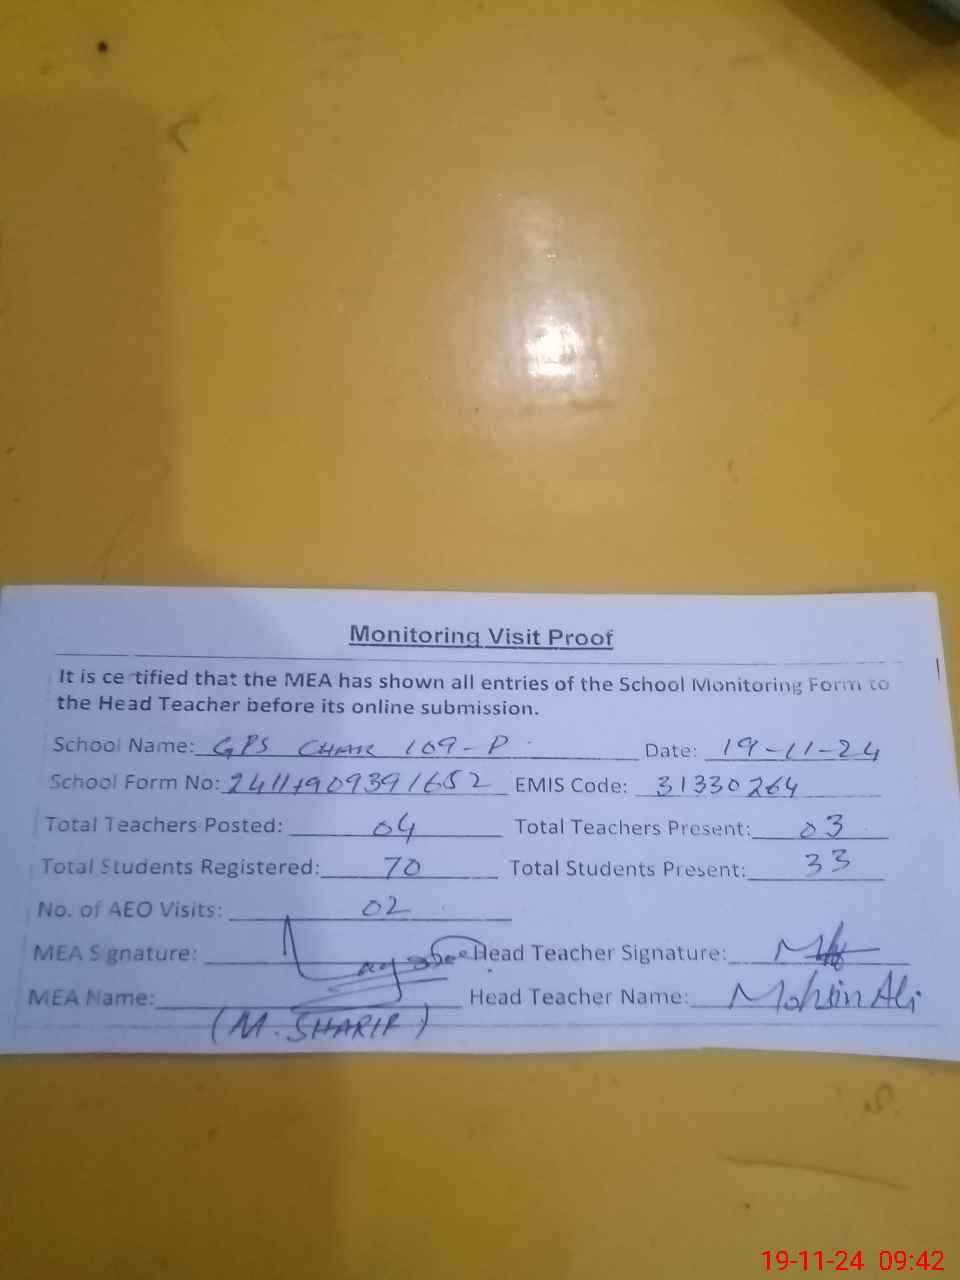 Monitoring Visit Proof
It is certified that the MEA has shown all entries of the School Monitoring Form to
the Head Teacher before its online submission.
School Name: GPS CHAK 109-P Date: 19-11-24
School Form No: EMIS Code: 31330264
Total Teachers Posted: 04 Total Teachers Present: 03
Total Students Registered: 70 Total Students Present: 33
No. of AEO Visits: 02
MEA Signature: Head Teacher Signature:
MEA Name: Head Teacher Name: Mohsin Ali
(M. SHARIF)
19-11-24 09:42